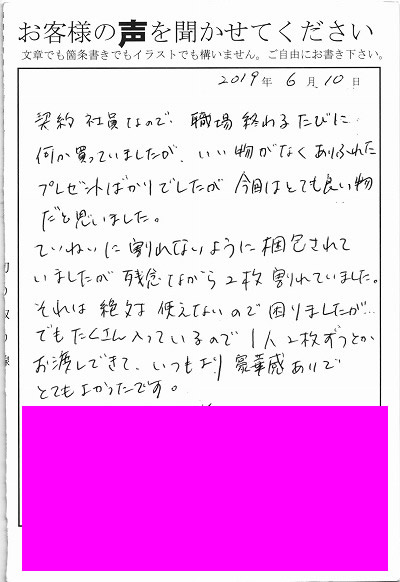 お客様の声を聞かせてください
文章でも箇条書きでもイラストでも構いません。ご自由にお書き下さい。
2019年 6月 10日
契約社員なので、職場終わるたびに
何か買っていましたが、いい物がなくありふれた
プレゼントばかりでしたが 今回はとても良い物
だと思いました。
ていねいに割れないように梱包されて
いましたが 残念ながら2枚割れていました。
それは絶対使えないので困りましたが…
でもたくさん入っているので1人2枚ずつとか
お渡しできて、いつもより豪華感ありで
とてもよかったです。